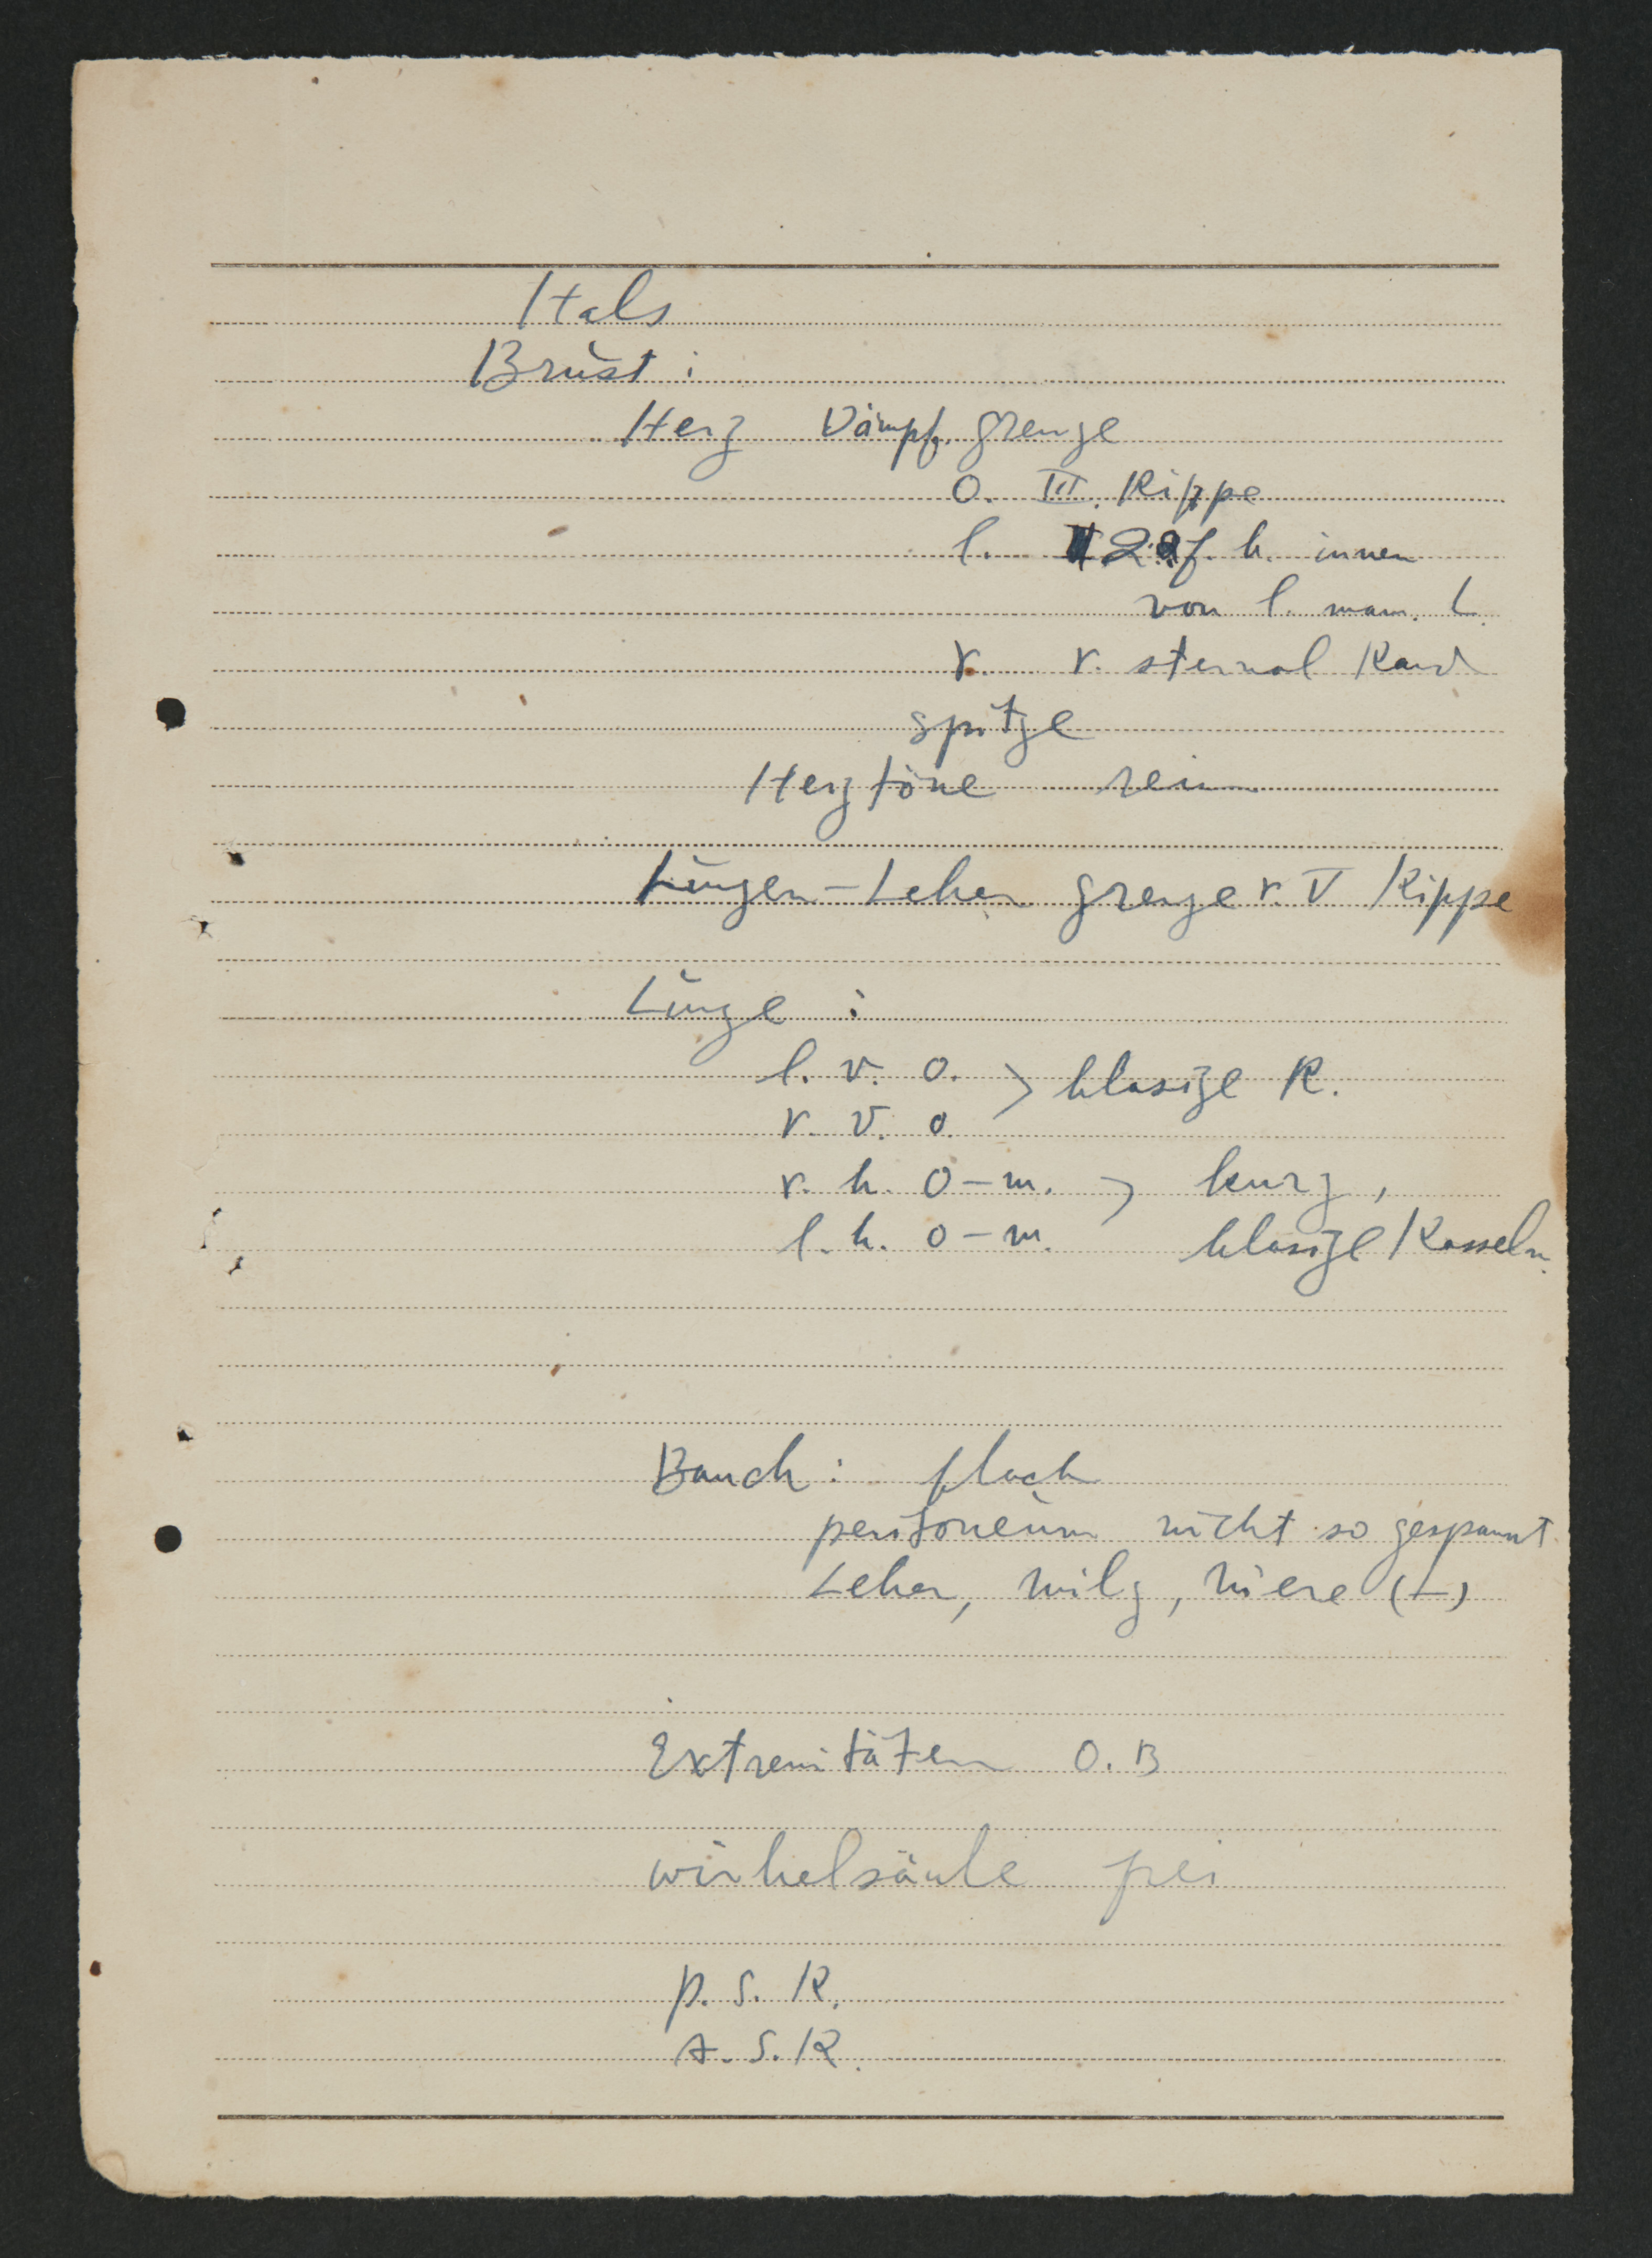 Hals
Brust :
Herz Dämpf. grenze
o. III. Rippe
l. 2 f. b. innen
von l. mam. L.
r. r. sternal Rand
spitze
Herztöne rein
Lungen-Leber grenze r. V Rippe
Lunge :
l. v. o. > blasige R.
r. v. o.
r. h. o-m. > kurz,
l. h. o-m. blasige Rasseln.
Bauch : flach
peritoneum nicht so gespannt.
Leber, milz, niere (-)
Extremitäten O.B
wirbelsäule frei
P. S. R.
A. S. R.